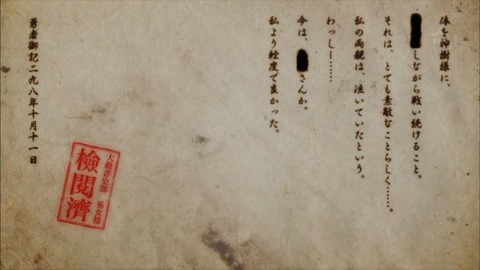 体を神樹様に、
しながら戦い続けること。
それは、とても素敵なことらしく……。
私の両親は、泣いていたという。
わっしー……
今は、さんか。
私より軽度で良かった。
勇者御記二九八年十月十一日
大赦書史部 巫女様
検閲済